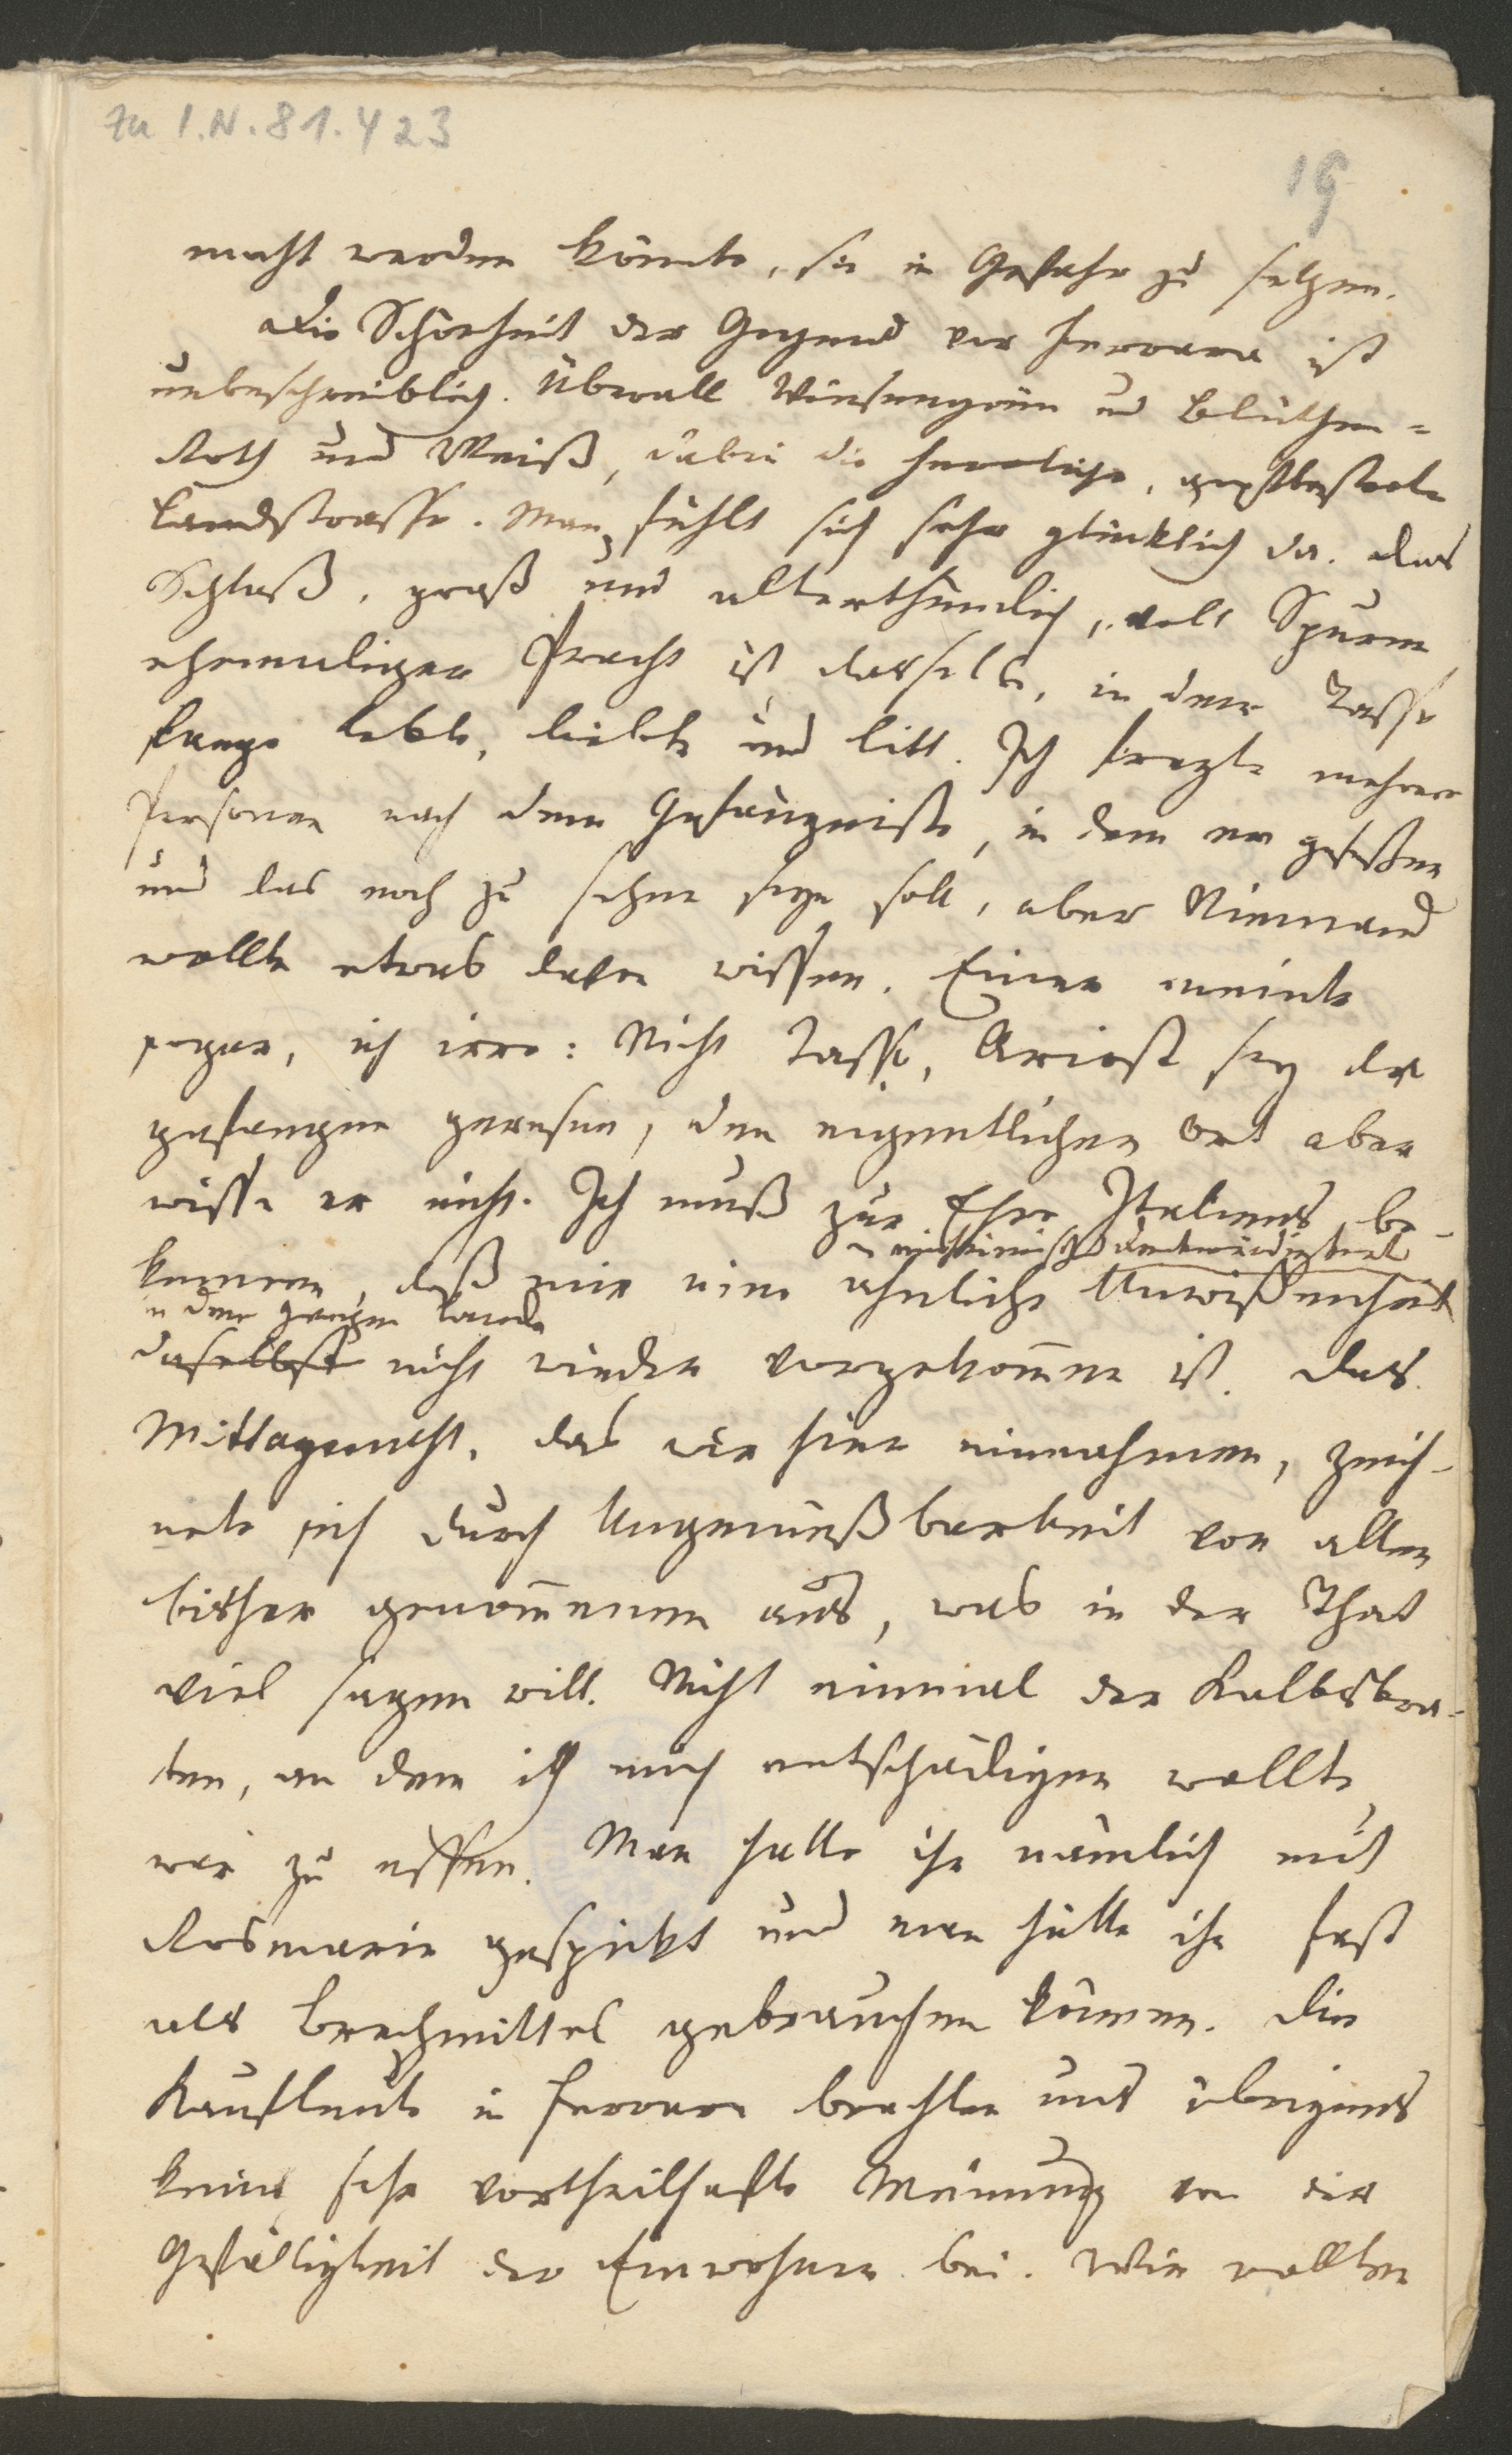 zu I.N. 81.423
19
macht werden könnte, sie in Gefahr zu setzen.
Die Schönheit der Gegend vor Ferrara ist
unbeschreiblich. Überall Wiesengrün und Blüthen=
Roth und Weiß, dabei die herrliche,
Landstrasse. Man fühlt sich sehr glücklich da. Das
Schloß, groß und alterthümlich, voll Spuren
ehemaliger Pracht ist dasselbe, in dem Tasso
lange lebte, liebte und litt. Ich fragte mehrere
Personen nach dem Gefängniße, in dem er geseßen
und das noch zu sehen seyn soll, aber Niemand
wollte etwas davon wissen. Einer meinte
sogar, ich irre: Nicht Tasso, Ariost sey da
gefangen gewesen, den eigentlichen Ort aber
wisse er nicht. Ich muß zur Ehre Italiens be-
in einheimischen Denkwürdigkeiten
kennen, daß mir eine ähnliche Unwißenheit
in dem ganzen Lande
daselbst nicht wieder vorgekom̄en ist. Das
Mittagmahl, das wir hier einnahmen, zeich-
nete sich durch Ungenießbarkeit von allen
bisher genom̄enen aus, was in der That
viel sagen will. Nicht einmal der Kalbsbra-
ten, an dem ich mich entschädigen wollte,
war zu essen. Man hatte ihn nämlich mit
Rosmarin gespickt und man hätte ihn fast
als Brechmittel gebrauchen können. Die
Kaufleute in Ferrara brachten uns übrigens
keine sehr vortheilhafte Meinung von der
Gefälligkeit der Einwohner bei. Wir wollten